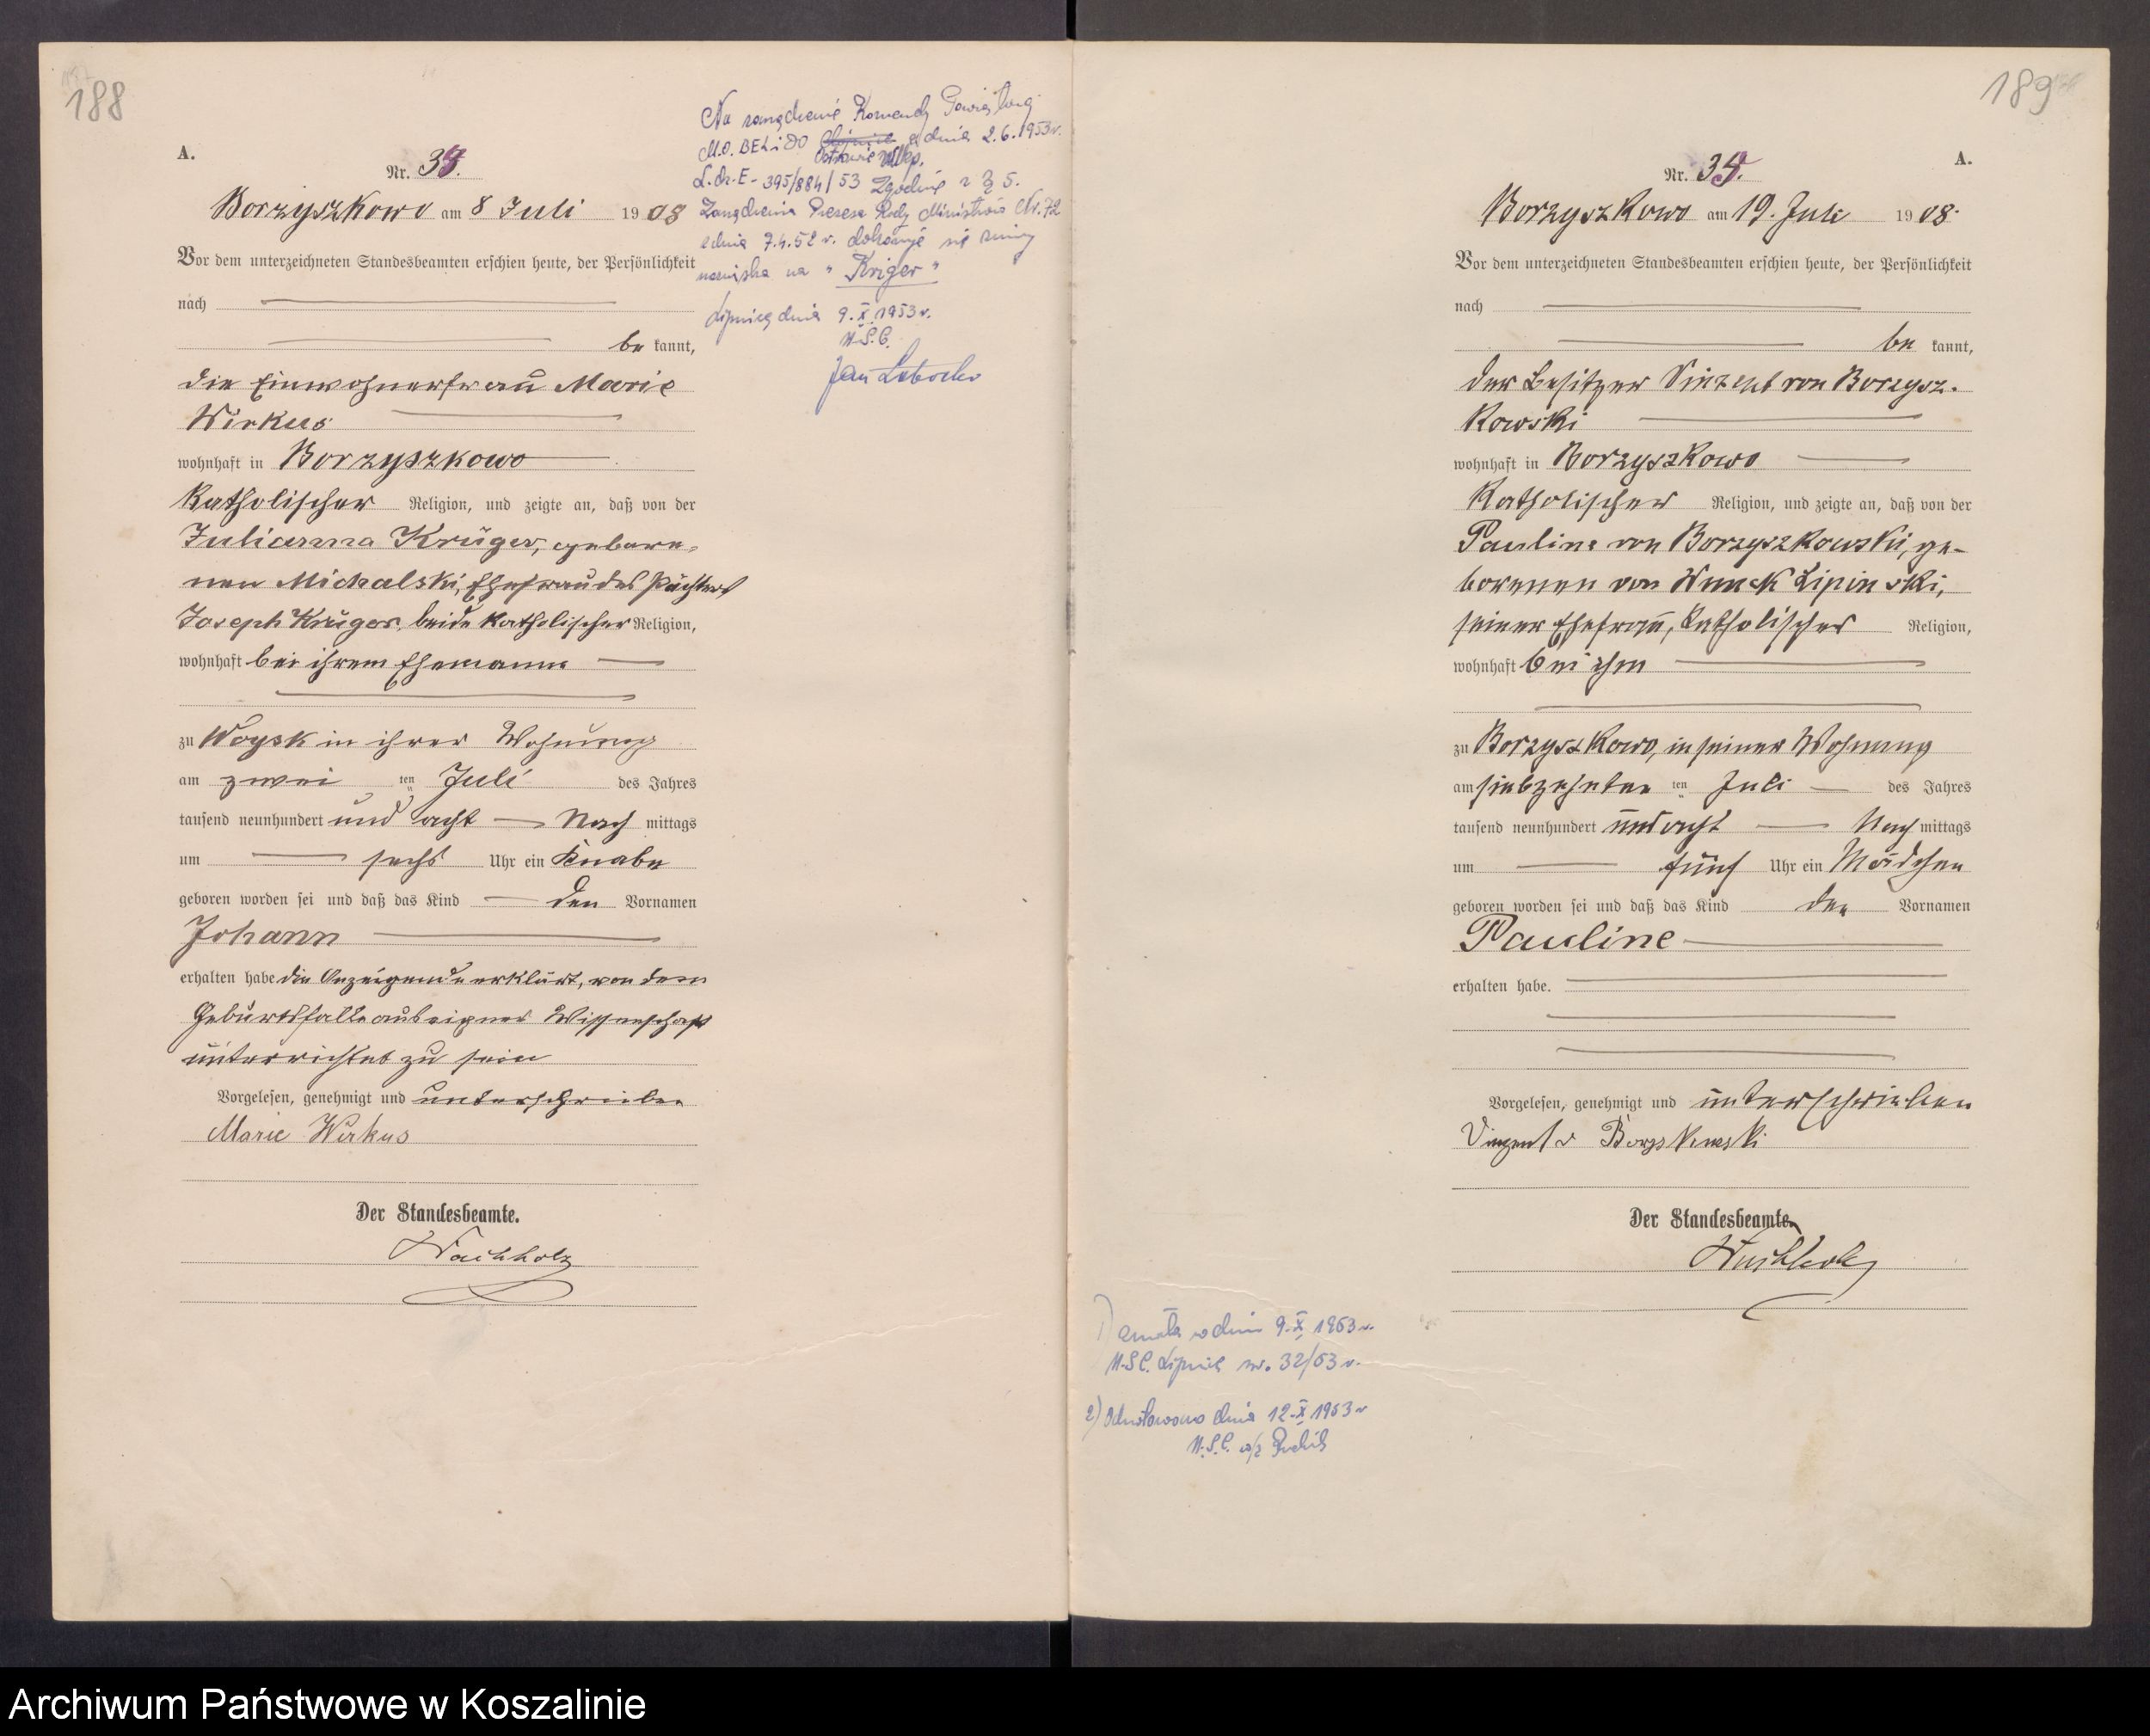 188
A.
Nr. 33.
Borzyszkowo am 8 Juli 1908
Vor dem unterzeichneten Standesbeamten erschien heute, der Persönlichkeit
nach
be kannt,
die Einwohnerfrau Marie
Wirkus
wohnhaft in Borzyszkowo
katholischer Religion, und zeigte an, daß von der
Julianna Krüger, gebore-
nen Michalski, Ehefrau des Pächters
Joseph Krüger, beide katholischer Religion,
wohnhaft bei ihrem Ehemanne
zu Woysk in ihrer Wohnung
am zwei ten Juli des Jahres
tausend neunhundert und acht Nach mittags
um sechs Uhr ein Knabe
geboren worden sei und daß das Kind den Vornamen
Johann
erhalten habe die Anzeigende erklärt, von dem
Geburtsfalle aus eigner Wissenschaft
unterrichtet zu sein
Vorgelesen, genehmigt und unterschrieben
Marie Wirkus
Der Standesbeamte.
Wachholz
Na zarządzenie Komendy Powiatowej
M.O. BEL i DO z dnia 2.6.1953 r.
Ostrowie Wlkp.
L.dz.E-395/884/53 Zgodnie z § 5.
Zarządzenia Prezesa Rady Ministrów Nr. 72
z dnia 7.4.52 r. dokonuje się zmiany
nazwiska na "Kriger"
Lipnica dnia 9.X.1953 r.
U.S.C.
Jan
189
A.
Nr. 34.
Borzyszkowo am 19. Juli 1908.
Vor dem unterzeichneten Standesbeamten erschien heute, der Persönlichkeit
nach
be kannt,
der Besitzer Vinzent von Borzysz-
kowski
wohnhaft in Borzyszkowo
katholischer Religion, und zeigte an, daß von der
Pauline von Borzyszkowski, ge-
borenen von Wnuck Lipinski,
seiner Ehefrau, katholischer Religion,
wohnhaft bei ihm
zu Borzyszkowo, in seiner Wohnung
am siebzehnten ten Juli des Jahres
tausend neunhundert und acht Nach mittags
um fünf Uhr ein Mädchen
geboren worden sei und daß das Kind den Vornamen
Pauline
erhalten habe.
Vorgelesen, genehmigt und unterschrieben
Vinzent v Borzskowski
Der Standesbeamte.
Wachholz
1) w dniu 9.X.1953 r.
U.S.C. Lipnica nr. 32/53 r.
2) Odnotowano dnia 12.X.1953 r
U.S.C. w/z
Archiwum Państwowe w Koszalinie